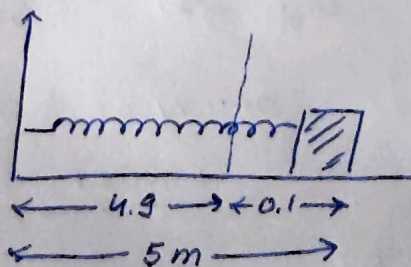 4.9 0.1
5m